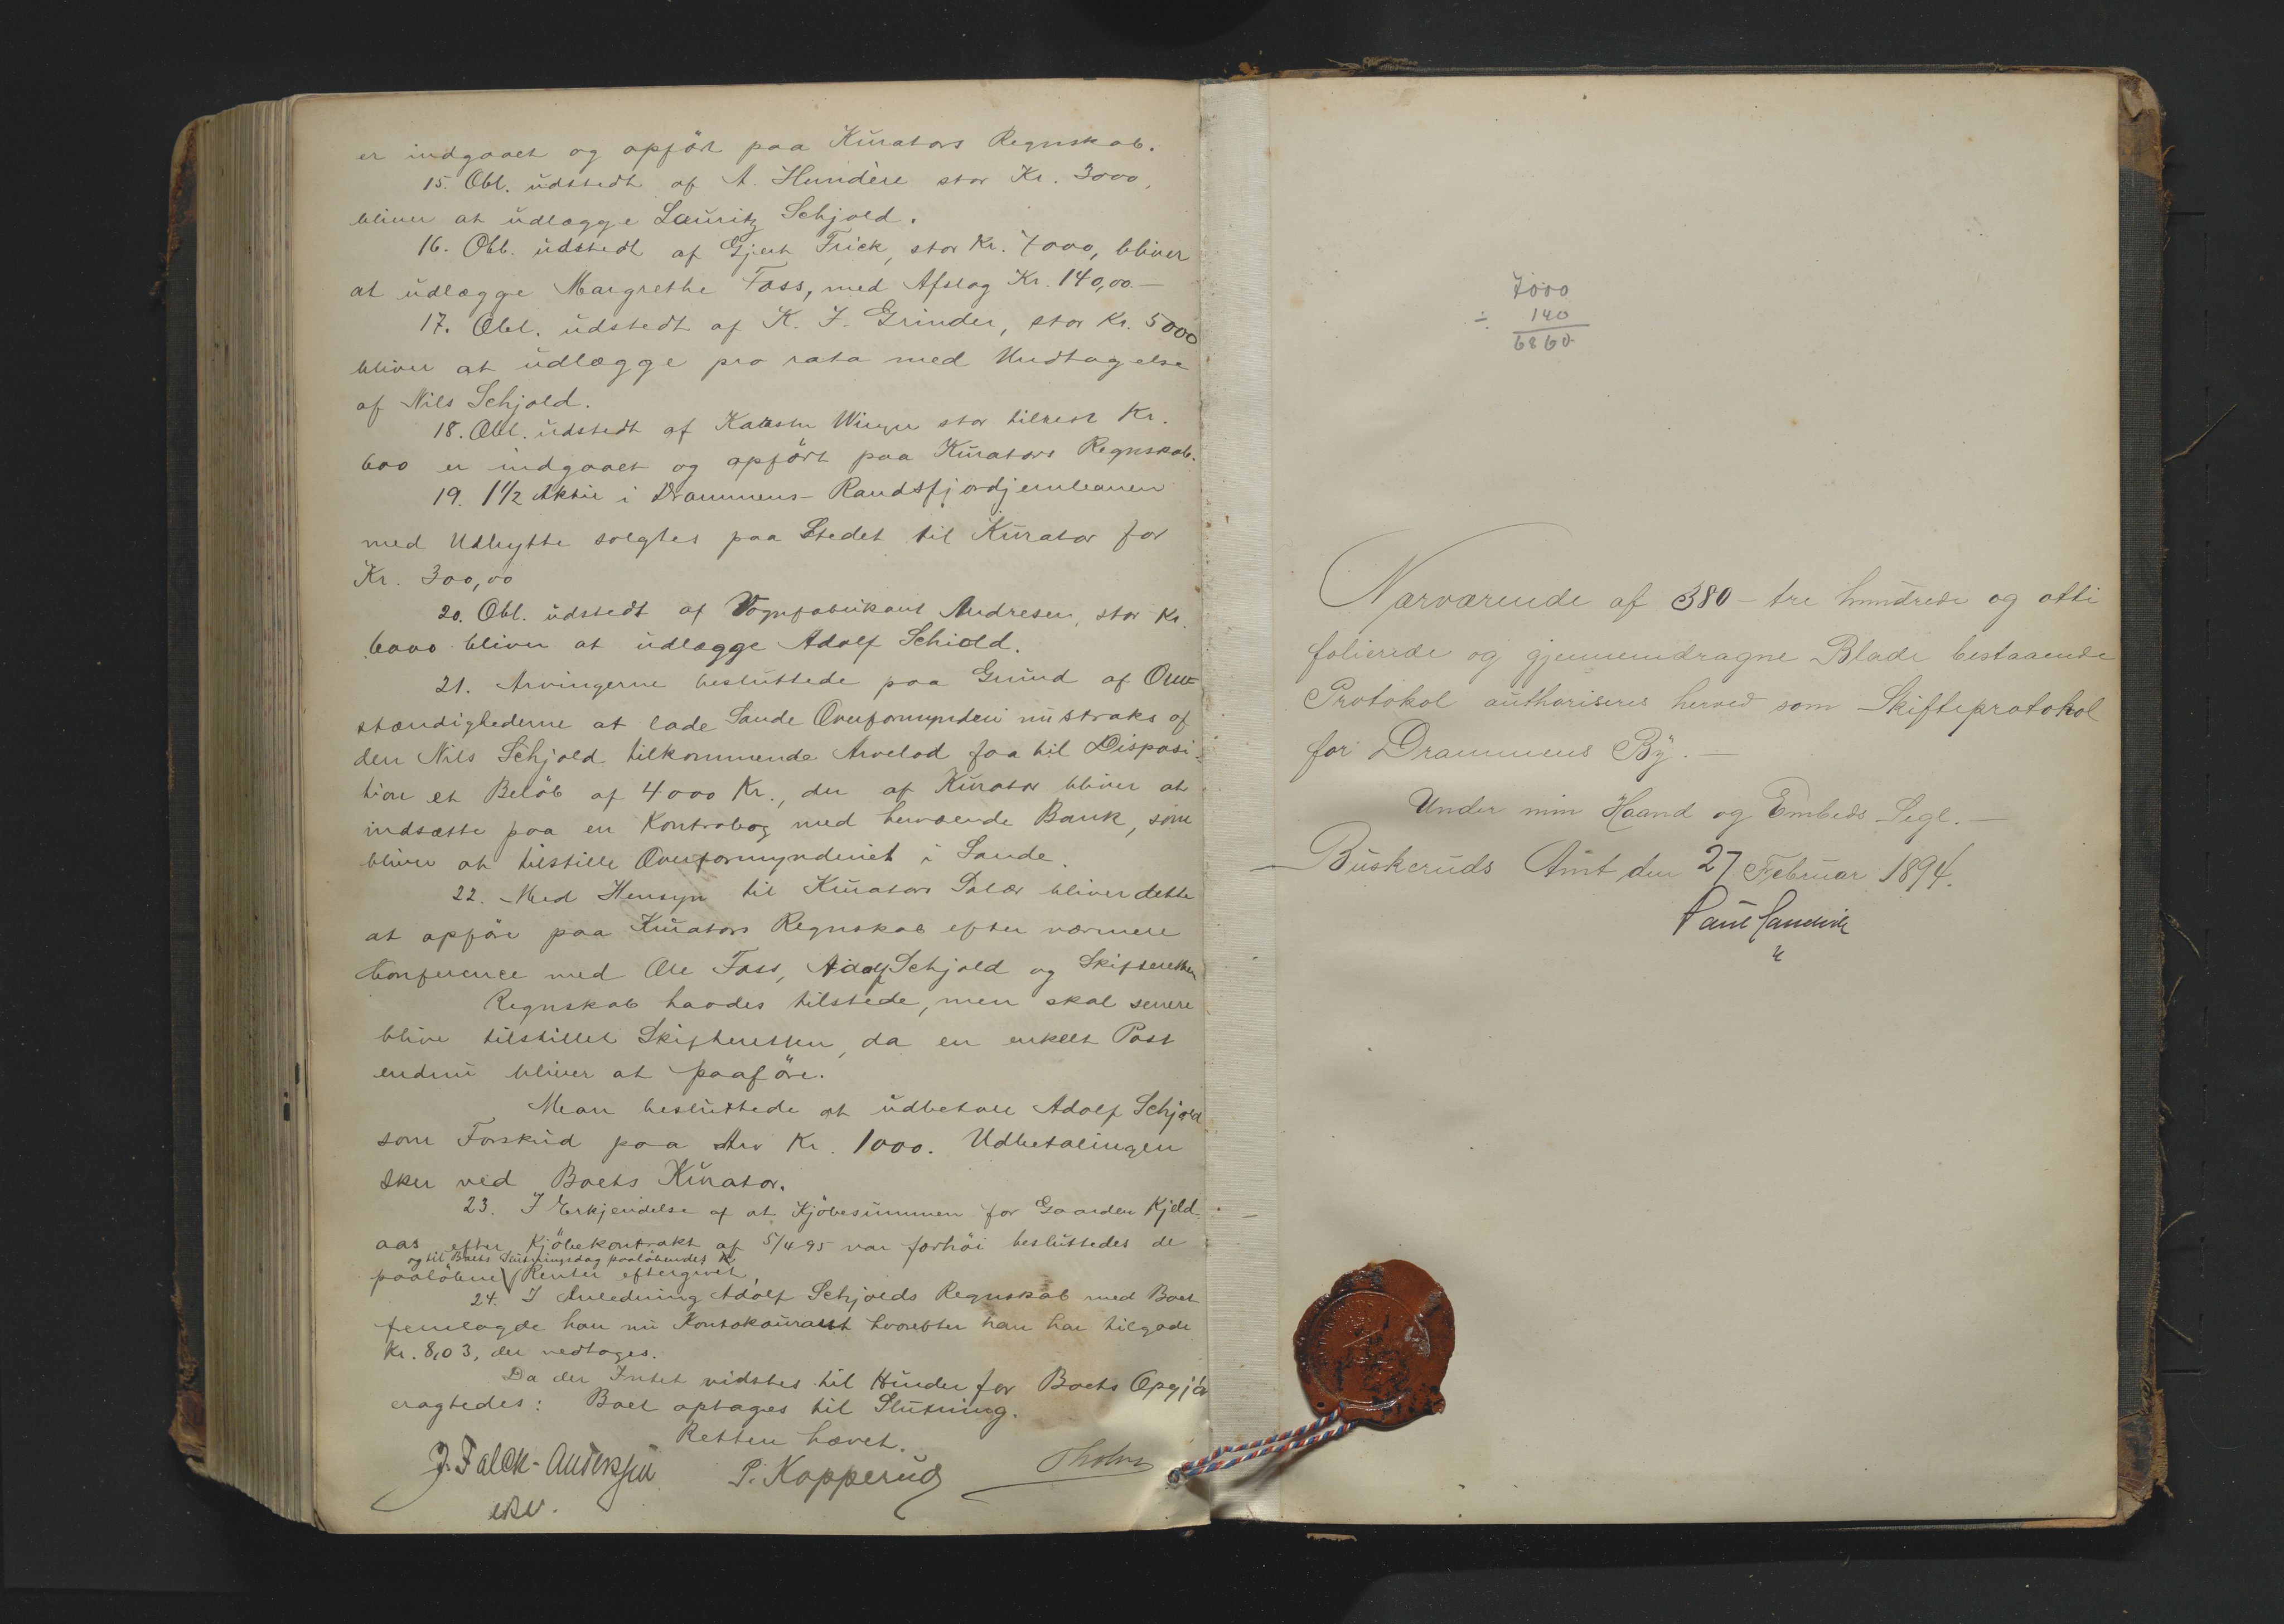 er indgaaet og opført paa Kurators Regnskab.
15. Obl. udstedt af A. Hundere stor Kr. 3000,
bliver at udlægge Lauritz Schjold.
16. Obl. udstedt af Gjert Frick, stor Kr. 7000, bliver
at udlægge Margrethe Foss, med Afslag Kr. 140,00.—
17. Obl. udstedt af K. J. Grinder, stor Kr. 5000
bliver at udlægge pro rata med Undtagelse
af Nils Schjold.
18. Obl. udstedt af stor tilrest Kr.
600 er indgaaet og opført paa Kurators Regnskab.
19. 1 1/2 Aktie i Drammens-Randsfjordjernbanen
med Udbytte solgtes paa Stedet til Kurator for
Kr. 300,00
20. Obl. udstedt af Vognfabrikant Andresen, stor Kr.
6000 bliver at udlægge Adolf Schiold.
21. Arvingerne besluttede paa Grund af Om=
stændighederne at lade Sande Overformynderi nu straks af
den Nils Schjold tilkommende Arvelod faa til Disposi=
tion et Beløb af 4000 Kr., der af Kurator bliver at
indsætte paa en Kontrabog med herværende Bank, som
bliver at tilstille Overformynderiet i Sande.
22. Med Hensyn til Kurators Salær bliver dette
at opføre paa Kurators Regnskab efter nærmere
Conference med Ole Foss, Adolf Schjold og Skifteretten
Regnskab havdes tilstede, men skal senere
blive tilstillet Skifteretten, da en enkelt Post
endnu bliver at paaføre.
Man besluttede at udbetale Adolf Schjold
som Forskud paa Arv Kr. 1000. Udbetalingen
sker ved Boets Kurator.
23. I Erkjendelse af at Kjøbesummen for Gaarden Kjeld
aas efter Kjøbekontrakt af 5/4 95 var forhøi besluttedes de
og til Boets Slutningsdag paaløbende
paaløbne Renter eftergivet.
24. I Anledning Adolf Schjolds Regnskab med Boet
fremlagde han nu Kontokourant hvorefter han har tilgode
Kr. 8,03, der vedtoges.
Da der Intet vidstes til Hinder for Boets Opgjør
eragtedes: Boet optages til Slutning.
Retten hævet.
J. Falck-Andersen P. Kopperud Tholm
7000
÷ 140
6860
Nærværende af 380 - tre hundrede og otti
folierede og gjennemdragne Blade bestaaende
Protokol authoriseres herved som Skifteprotokol
for Drammens By.—
Under min Haand og Embeds Segl.—
Buskeruds Amt den 27 Februar 1894.